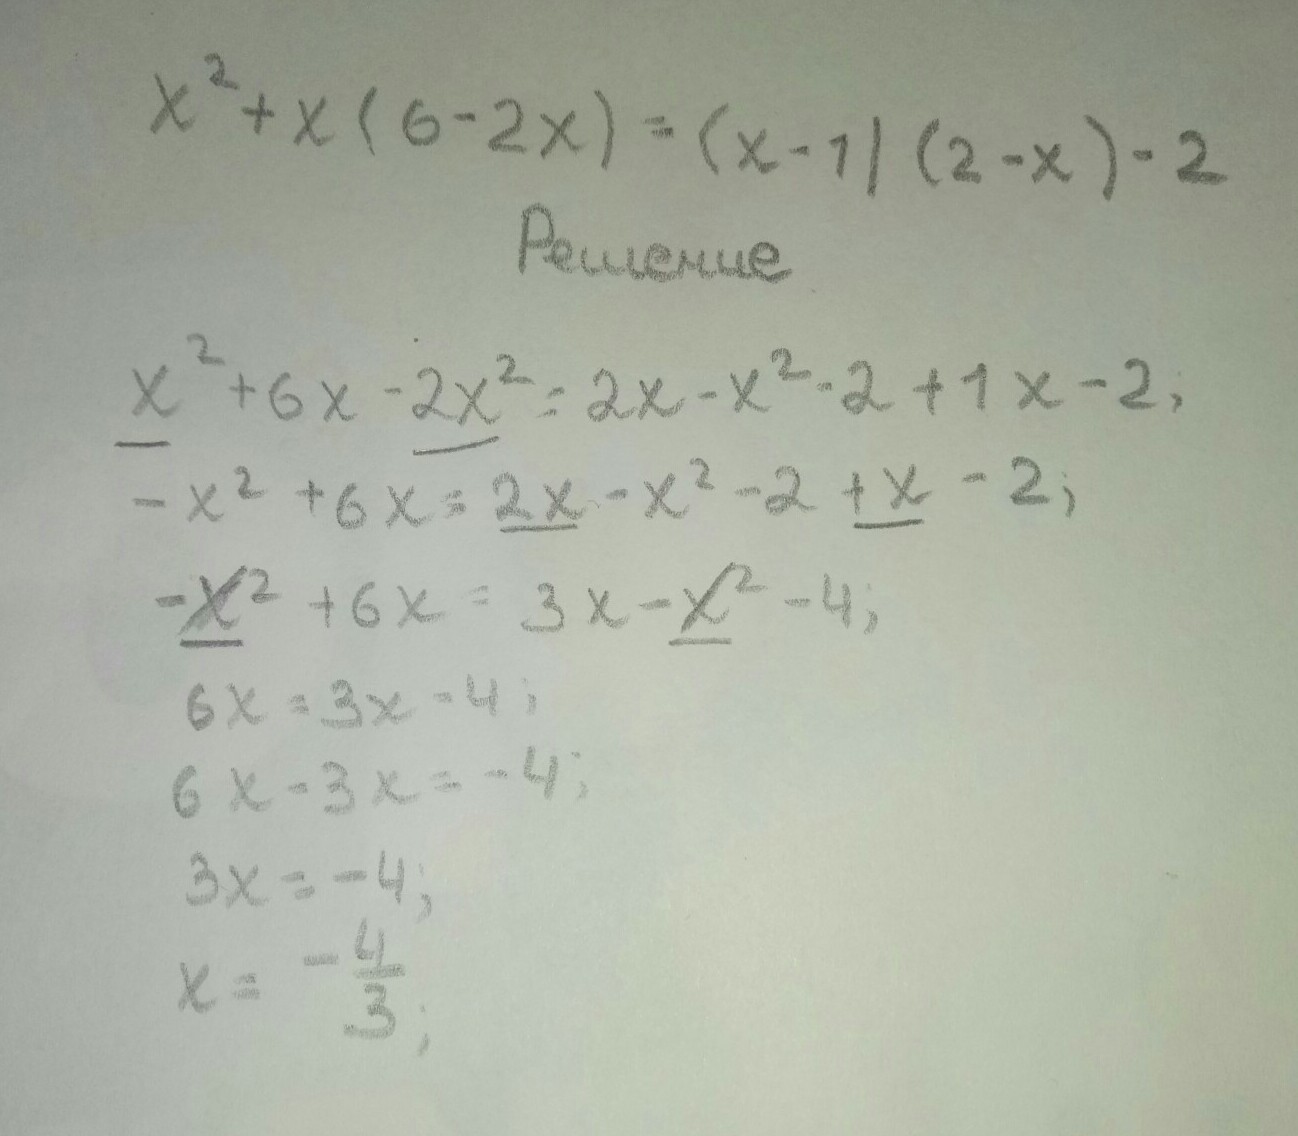 x² + x (6 - 2x) = (x - 1) (2 - x) - 2
Решение
x² + 6x - 2x² = 2x - x² - 2 + 1x - 2;
- x² + 6x = 2x - x² - 2 + x - 2;
- x² + 6x = 3x - x² - 4;
6x = 3x - 4;
6x - 3x = -4;
3x = -4;
x = -4/3;